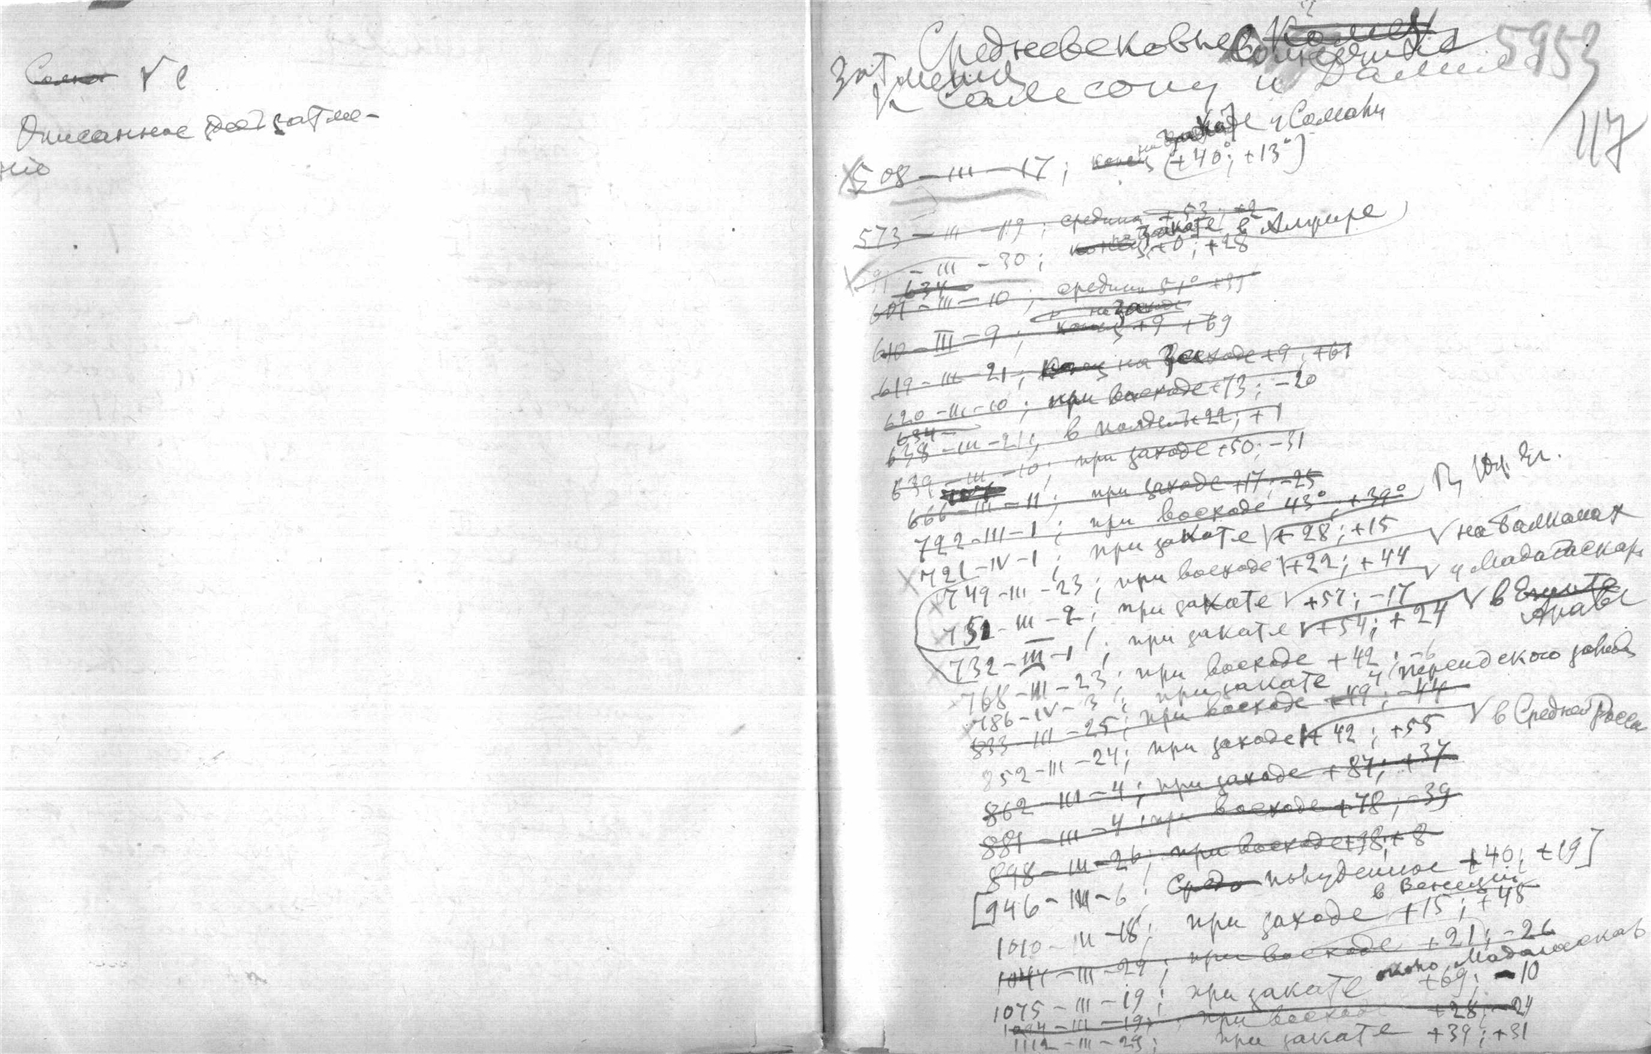 V e
Описанное затме-
ніе
5953
117
Средневековые
затмения
к Самсону и
у Сомали
508 – III – 17; [+40°; +13°]
573 – III – 19; средина +53;
закате в Алжире
91 – III – 30; +0; +28
634
601 – III – 10; средина 51° +35
на заходе
610 – III – 9; конец +9 +69
619 – III – 21; на Восходе +9; +61
620 – III – 10; при восходе +73; –20
634 –
638 – III – 21; в полдень +22; +1
639 – III – 10; при заходе +50; –31
666 – III – 11; при заходе +17; –25
722 – III – 1; при восходе 43°; +39°
721 – IV – 1; при закате +28; +15
749 – III – 23; при восходе +22; +44 V на Балканах
751 – III – 2; при закате +57; –17 V у Мадагаскар
732 – III – 1; при закате V +54; +24 V в Египте
768 – III – 23; при восходе +42; –6
786 – IV – 3; при закате у Персидского залива
833 – III – 25; при восходе +49; –44
852 – III – 24; при заходе +42; +55 V в Средней России
862 – III – 4; при заходе +87; +37
881 – III – 4; при восходе +78; –39
898 – III – 26; при восходе +98; +8
[946 – III – 6; полуденное +40; +19]
в Венеции
1010 – III – 18; при заходе +15; +45
1044 – III – 29; при восходе +21; –26
около Мадагаскар
1075 – III – 19; при закате +69; –10
1094 – III – 19; при восходе +28; –24
1112 – III – 29; при закате +39; +31